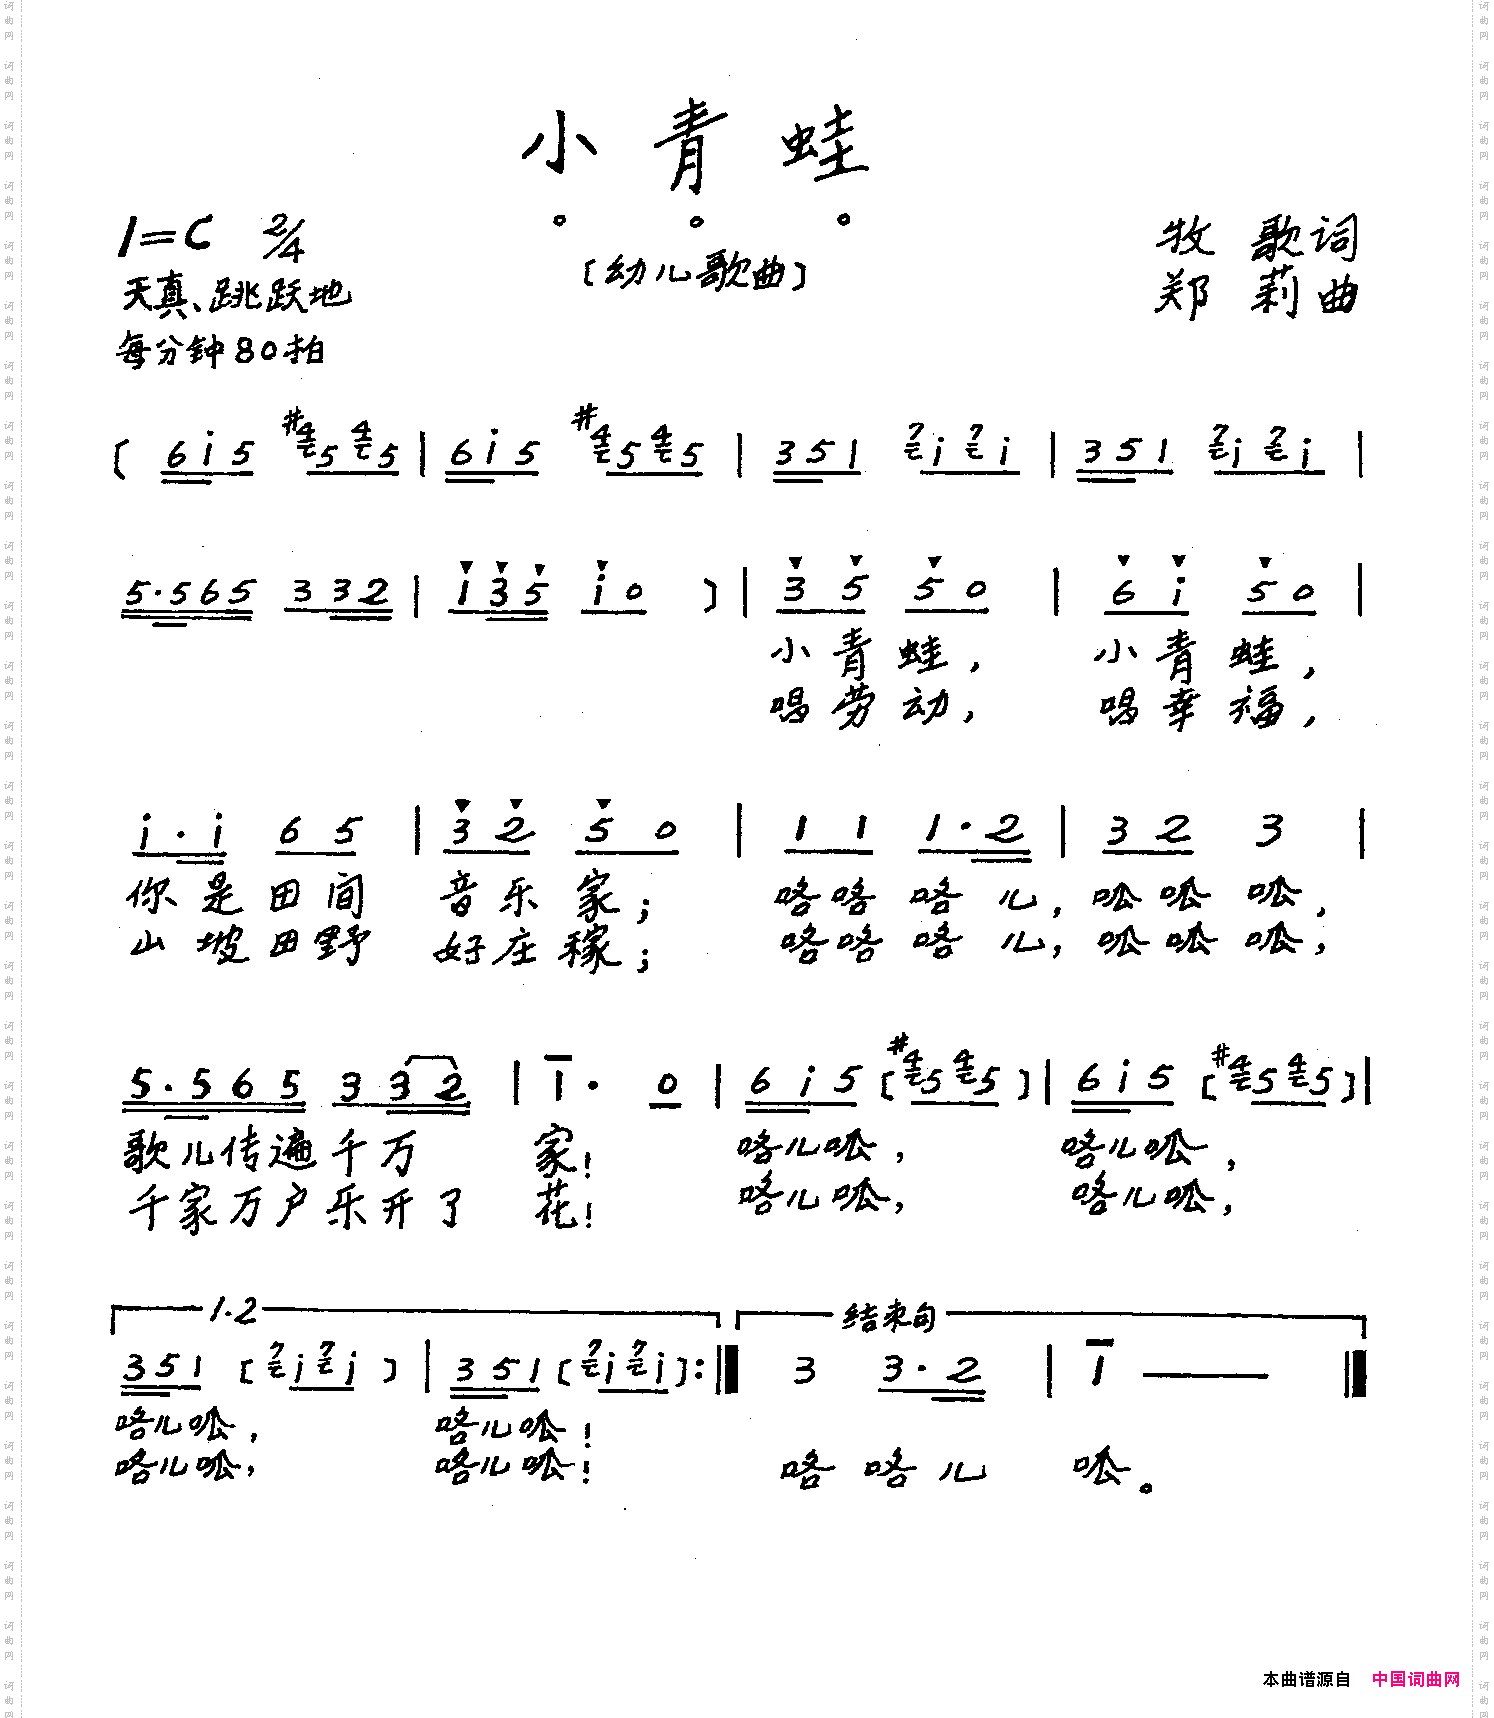 小青蛙
1=C 2/4
〔幼儿歌曲〕
牧 歌词
天真、跳跃地
郑 莉曲
每分钟80拍
〔 6i5 #45 45 | 6i5 #45 45 | 351 7i 7i | 351 7i 7i |
5·565 332 | 135 i0 〕| 3 5 5 0 | 6 i 5 0 |
小青蛙, 小青蛙,
唱劳动, 唱幸福,
i·i 6 5 | 3 2 5 0 | 1 1 1·2 | 3 2 3 |
你是田间 音乐家; 咯咯咯儿, 呱呱呱,
山坡田野 好庄稼; 咯咯咯儿, 呱呱呱,
5·565 332 | 1· 0 | 6i5 〔#45 45〕| 6i5 〔#45 45〕|
歌儿传遍千万 家! 咯儿呱, 咯儿呱,
千家万户乐开了 花! 咯儿呱, 咯儿呱,
1·2 结束句
351 〔7i 7i〕 | 351 〔7i 7i〕:‖ 3 3·2 | 1 — ‖
咯儿呱, 咯儿呱!
咯儿呱, 咯儿呱! 咯咯儿 呱。
本曲谱源自 中国词曲网
词曲网